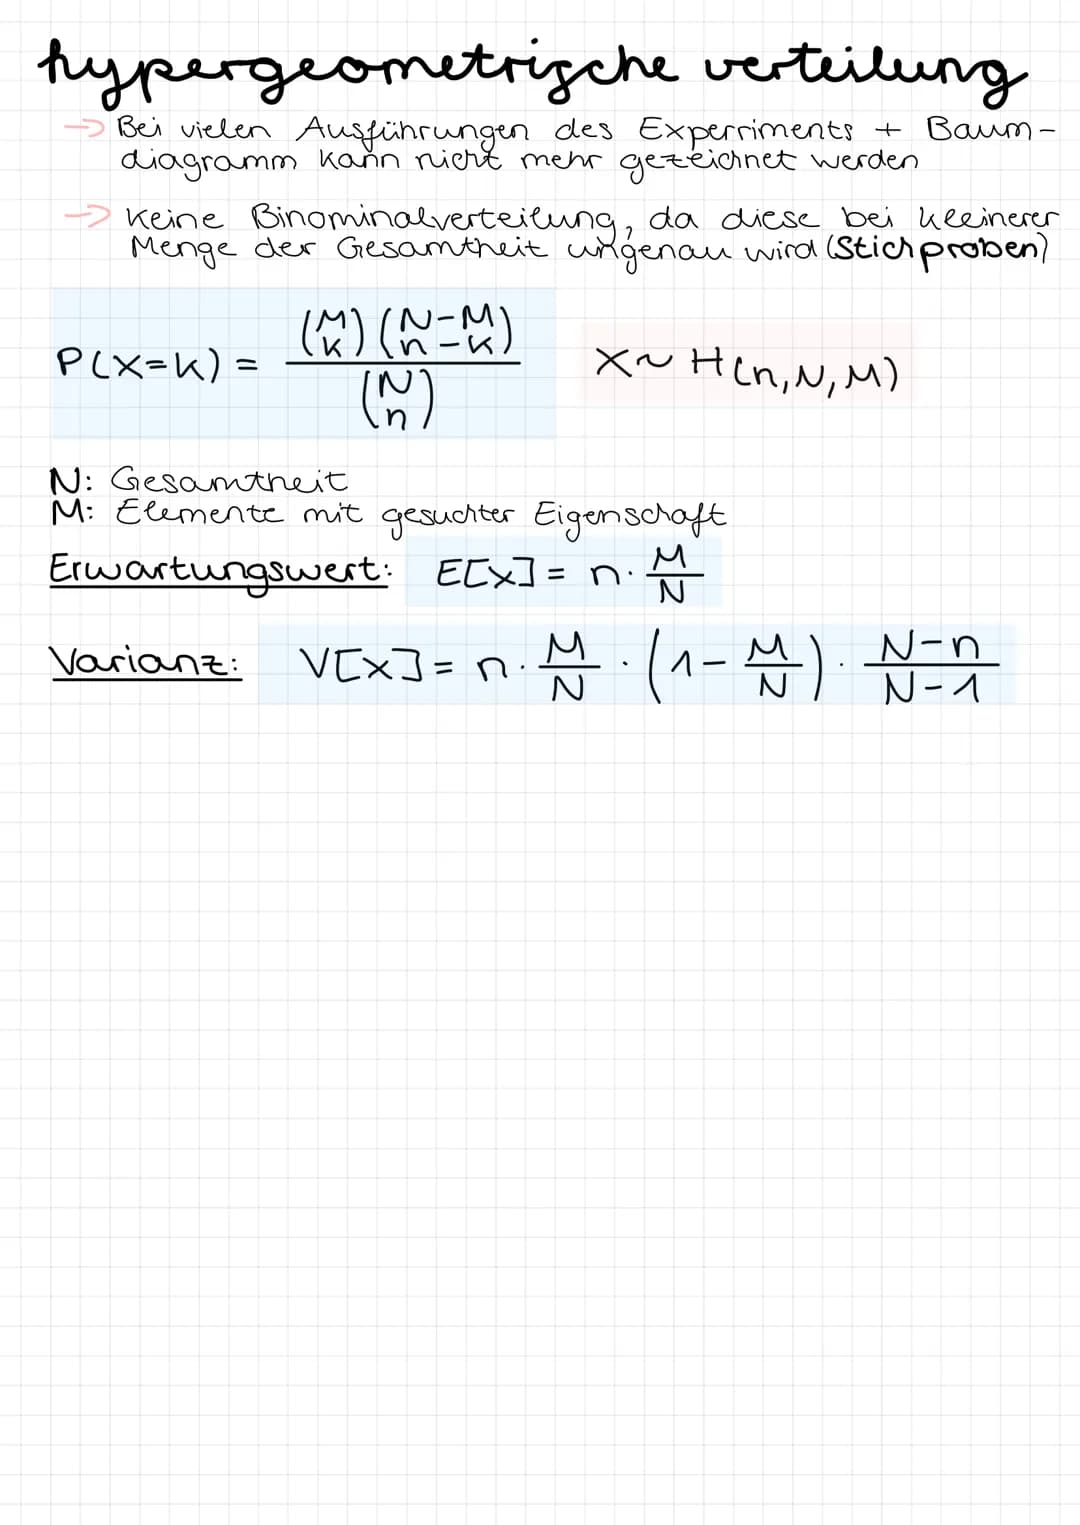 hypergeometrische verteilung
-> Bei vielen Ausführungen des Experriments + Baum-
diagramm kann nicht mehr gezeichnet werden
-> Keine Binominalverteilung, da diese bei kleinerer
Menge der Gesamtheit ungenau wird (Stichproben)
P(X=k) = \frac{\binom{M}{k} \binom{N-M}{n-k}}{\binom{N}{n}} X ~ H(n,N,M)
N: Gesamtheit
M: Elemente mit gesuchter Eigenschaft
Erwartungswert: E[X] = n · \frac{M}{N}
Varianz: V[X] = n · \frac{M}{N} · (1 - \frac{M}{N}) · \frac{N-n}{N-1}